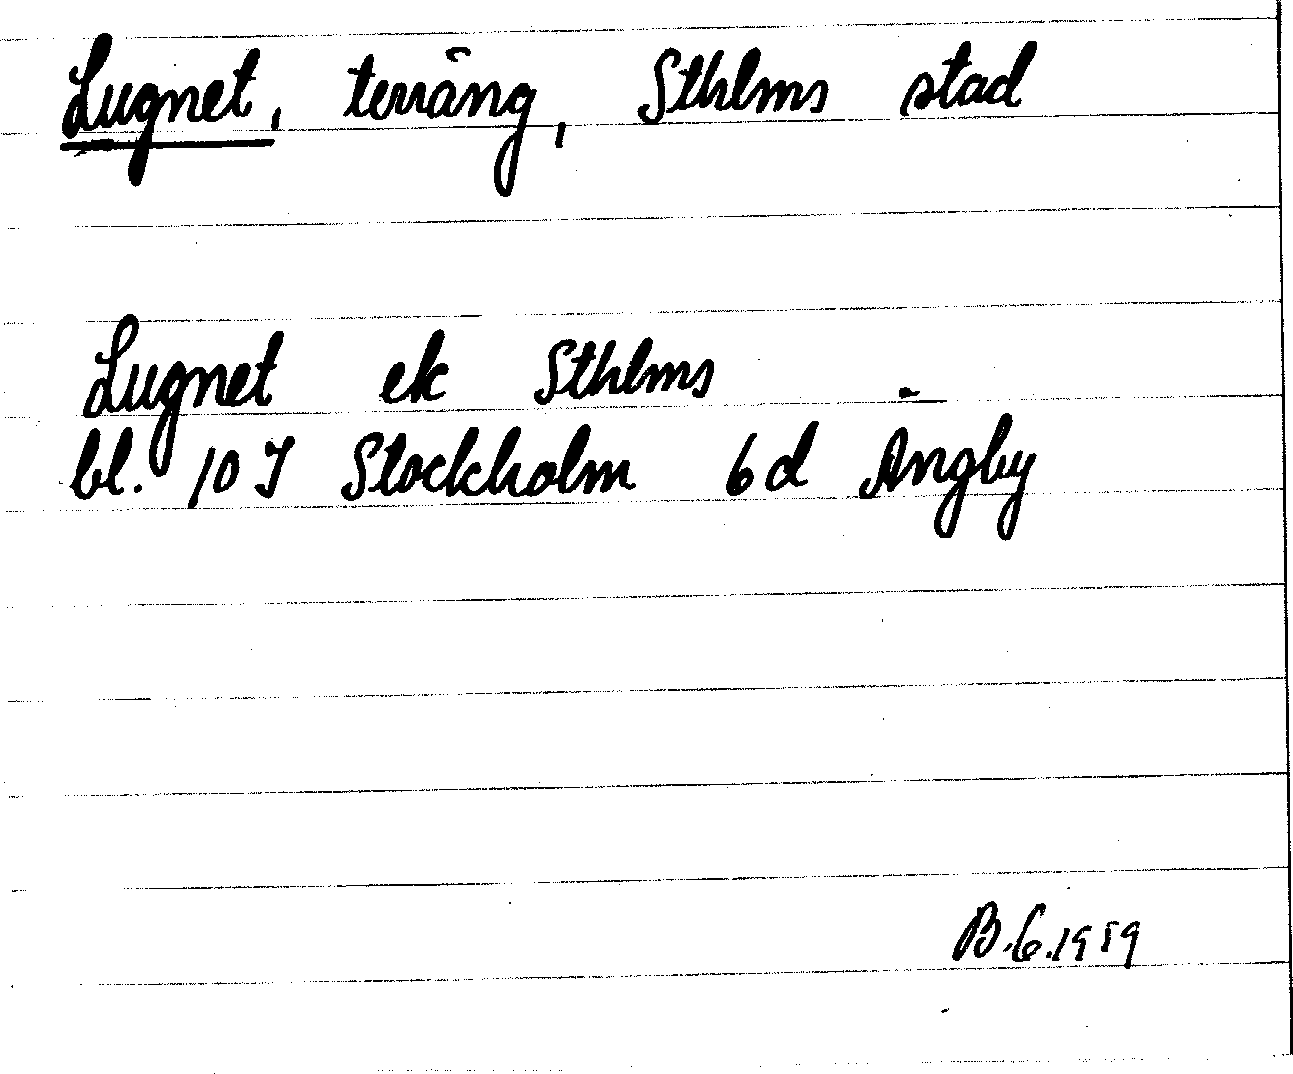 Lugnet, terräng, Sthlms stad
Lugnet ek Sthlms
bl. 10 I Stockholm 6d Ängby
B.G. 1959